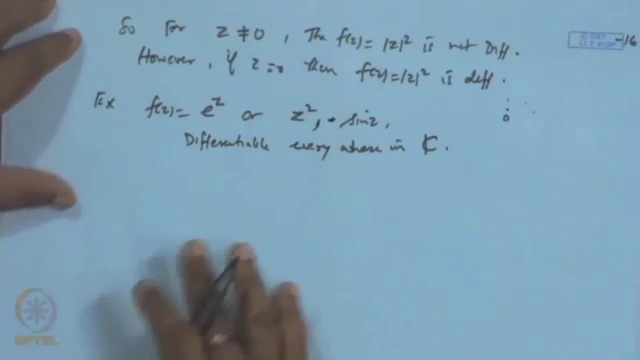 So for z ≠ 0, the f(z) = |z|² is not Diff.
However, if z = 0 then f(z) = |z|² is diff.
Ex f(z) = e^z or z², sin z,
Differentiable every where in ℂ.
NPTEL